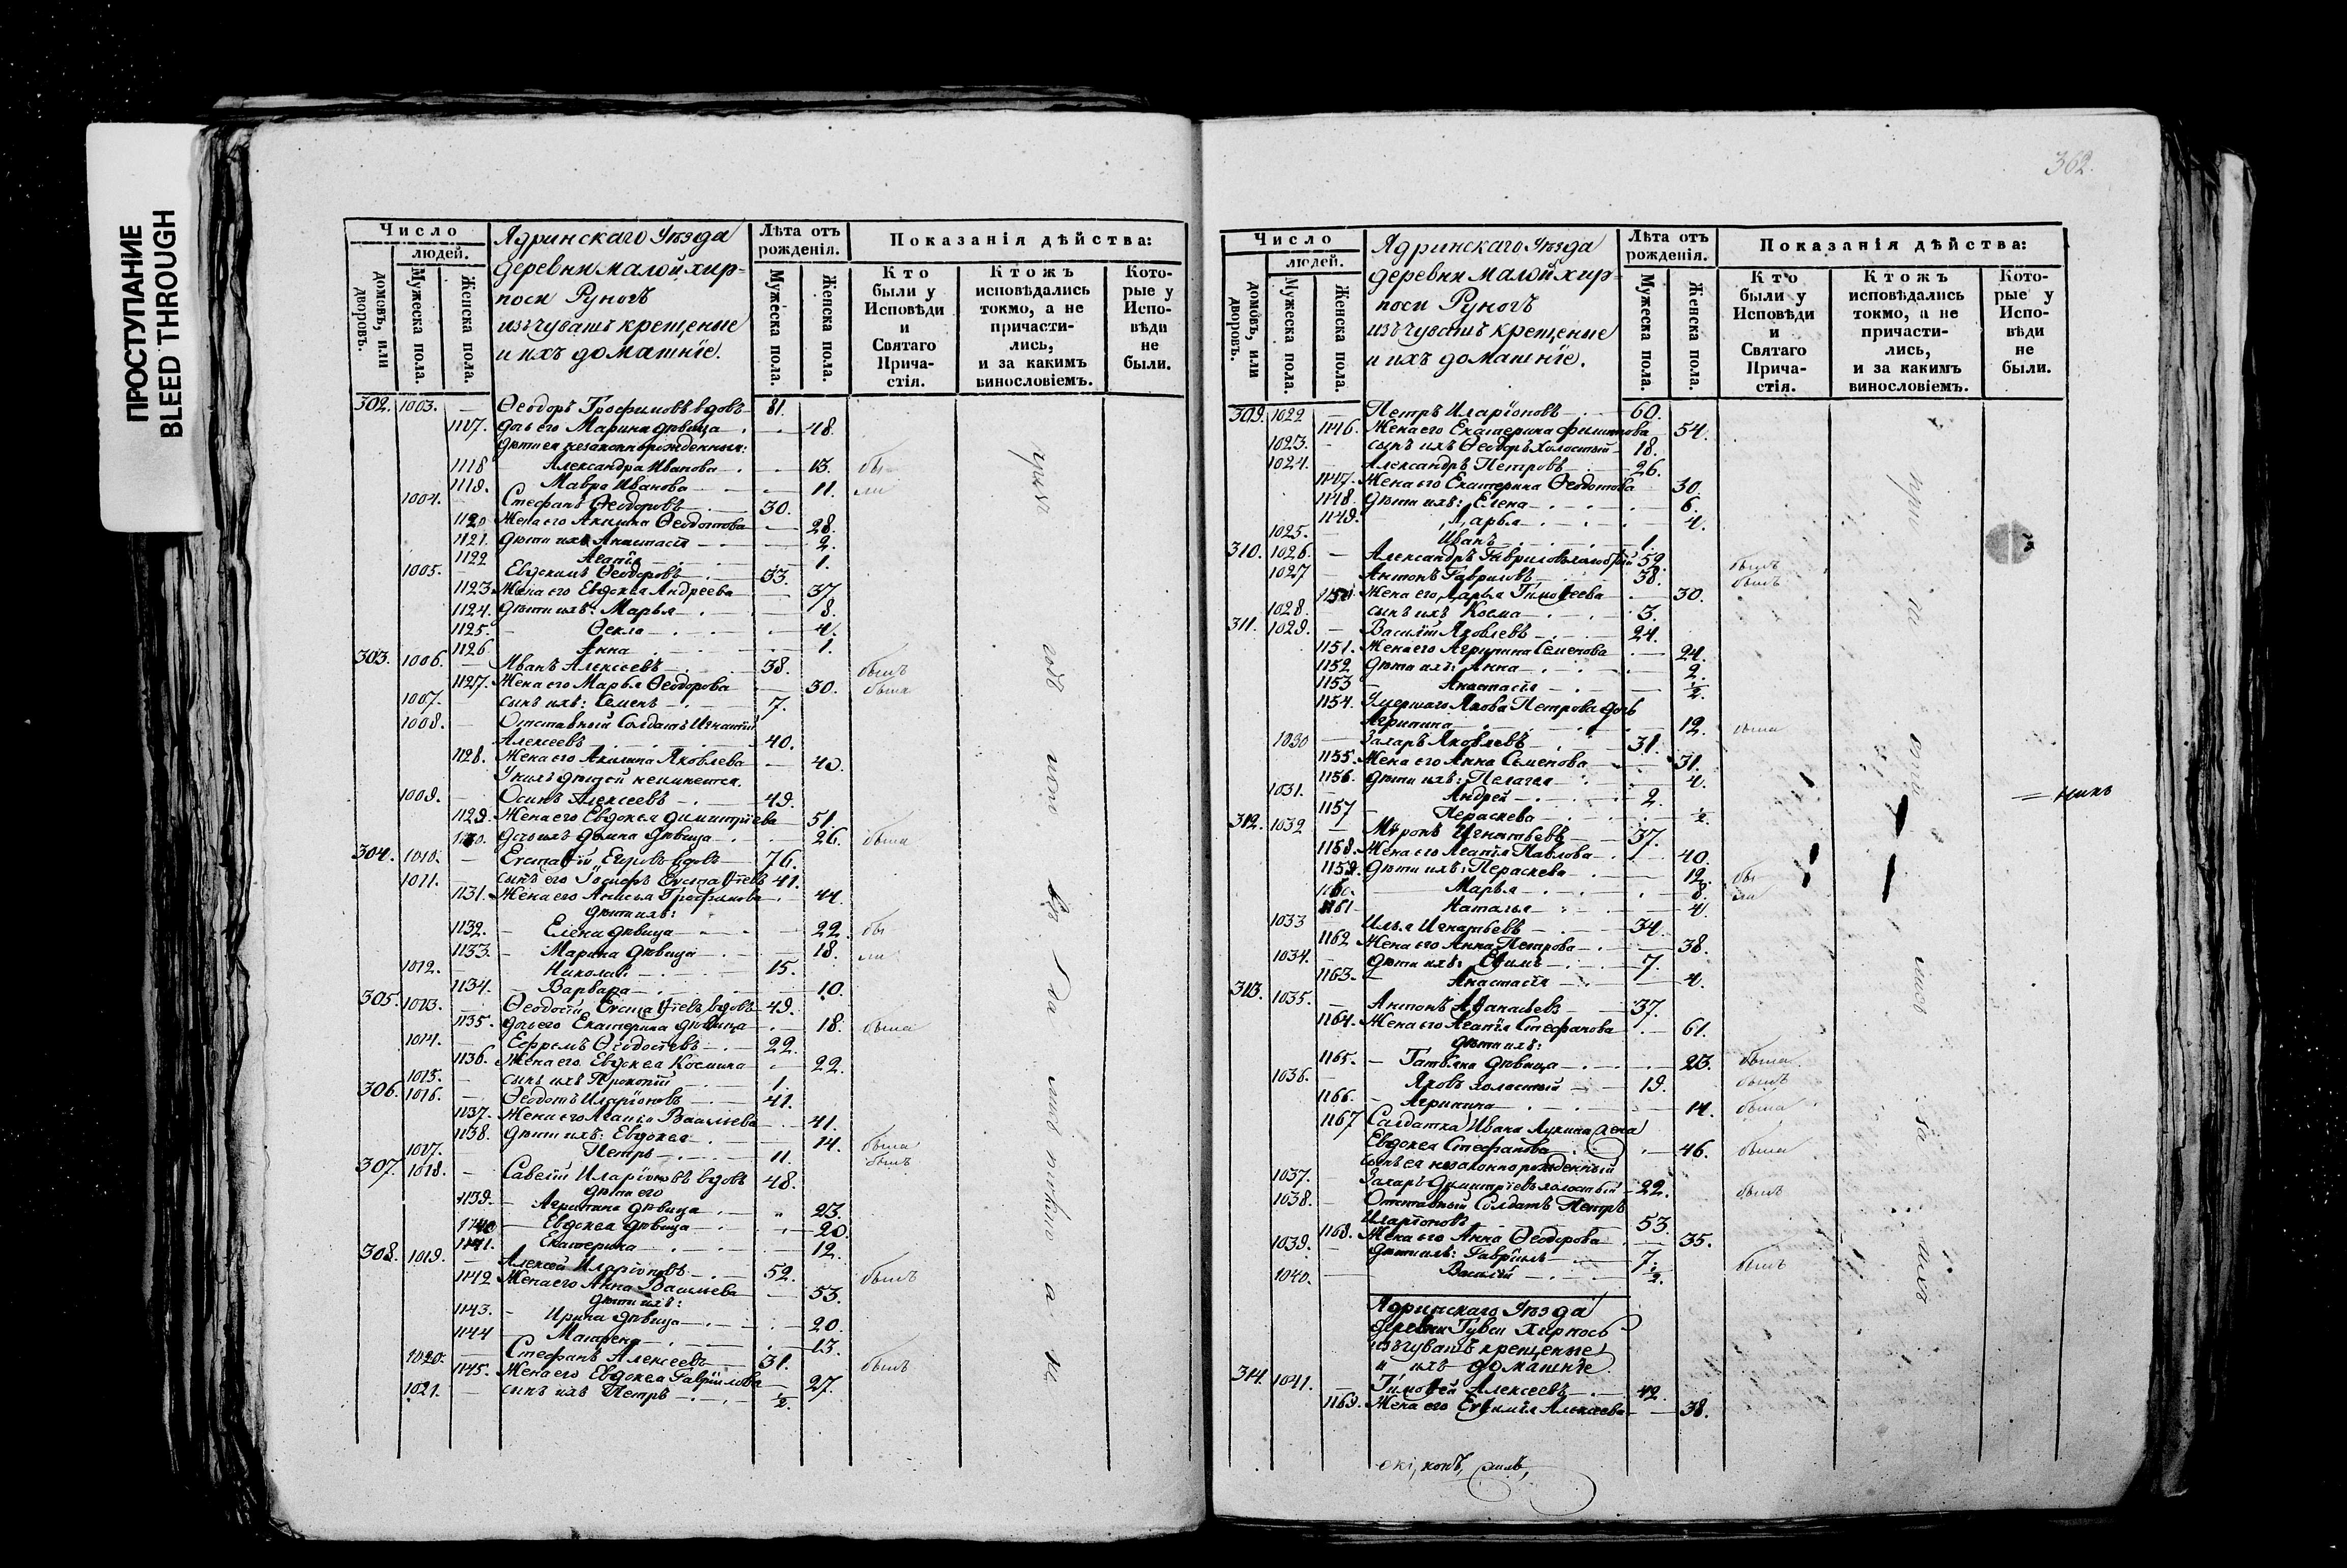 ПРОСТУПАНИЕ
BLEED THROUGH
Число
людей.
домовъ, или дворовъ.
Мужеска пола.
Женска пола.
Ядринскаго Уѣзда
деревни малой хир-
поси Руногъ
изъ чувашъ крещеные
и ихъ домашніе.
Лѣта отъ рожденія.
Мужеска пола.
Женска пола.
Показанія дѣйства:
Кто были у Исповѣди и Святаго Прича-стія.
Ктожъ исповѣдались токмо, а не причасти-лись, и за какимъ винословіемъ.
Кото-рые у Испо-вѣди не были.
302. 1003. — Ѳеодоръ Трофимовъ вдовъ — 81.
1117. дочь его Марина дѣвица — 48.
дѣти ея незаконнорожденныя:
1118 — Александра Иванова — 13. бы
1119. Мавра Иванова — 11. ли
1004. Стефанъ Ѳеодоровъ — 30.
1120 Жена его Акилина Ѳеодотова — 28.
1121. дѣти ихъ Анастасія — 2.
1122 Агапія — 1.
1005. Евдокимъ Ѳеодоровъ — 33.
1123. Жена его Евдокья Андреева — 37.
1124. дѣти ихъ: Марья — 8.
1125. — Ѳекла — 4.
1126 Анна — 1.
303. 1006. — Иванъ Алексеевъ — 38. былъ
1127. Жена его Марья Ѳеодорова — 30. была
1007. сынъ ихъ: Семенъ — 7.
1008. — Отставный Солдатъ Игнатій
Алексеевъ — 40.
1128. Жена его Акилина Яковлева — 40.
У нихъ дѣтей неимеется.
1009. — Осипъ Алексеевъ — 49.
1129. Жена его Евдокья Димитріева — 51.
1130. дочь ихъ Домна дѣвица — 26. была
304. 1010. — Евстаѳій Егоровъ вдовъ — 76.
1011. — сынъ его Іосифъ Евстаѳіевъ 41.
1131. Жена его Анисья Трофимова — 44.
дѣти ихъ:
1132. — Елена дѣвица — 22. бы
1133. — Марина дѣвица — 18. ли
1012. Николай — 15.
1134. — Варвара — 10.
305. 1013. — Ѳеодосій Евстаѳіевъ вдовъ 49.
1135. дочь его Екатерина дѣвица — 18. была
1014. — Ефремъ Ѳеодосіевъ — 22.
1136. Жена его Евдокеа Космина — 22.
1015. — сынъ ихъ Прокопій — 1.
306. 1016. — Ѳеодотъ Иларіоновъ — 41.
1137. Жена его Агапія Васильева — 41.
1138. дѣти ихъ: Евдокеа — 14. была
1017. Петръ — 11. былъ
307. 1018. — Савелій Иларіоновъ вдовъ 48.
дѣти его
1139. — Агрипина дѣвица — 23.
1140 — Евдокеа дѣвица — 20.
1141. Екатерина — 12.
308. 1019. — Алексей Иларіоновъ — 52. былъ
1142 Жена его Анна Васильева — 53.
дѣти ихъ:
1143. — Ирина дѣвица — 20.
1144 — Матрена — 13.
1020. — Стефанъ Алексеевъ — 31. былъ
1145. Жена его Евдокеа Гавріилова — 27.
1021. — сынъ ихъ Петръ — ½.
362.
Число
людей.
домовъ, или дворовъ.
Мужеска пола.
Женска пола.
Ядринскаго Уѣзда
деревни малой хир-
поси Руногъ
изъ чувашъ крещеные
и ихъ домашніе.
Лѣта отъ рожденія.
Мужеска пола.
Женска пола.
Показанія дѣйства:
Кто были у Исповѣди и Святаго Прича-стія.
Ктожъ исповѣдались токмо, а не причасти-лись, и за какимъ винословіемъ.
Кото-рые у Испо-вѣди не были.
309. 1022 — Петръ Иларіоновъ — 60.
1146. Жена его Екатерина Филиппова 54.
1023. — сынъ ихъ Ѳеодоръ холостый — 18.
1024. — Александръ Петровъ — 26.
1147. Жена его Екатерина Ѳеодотова 30.
1148. дѣти ихъ: Елена — 6.
1149. Дарья — 4.
1025. — Иванъ — 1.
310. 1026. — Александръ Гавриловъ 52. былъ
1027 — Антонъ Гавриловъ — 38. былъ
1150 Жена его Дарья Тимоѳеева — 30.
1028. сынъ ихъ Косма — 3.
311. 1029. — Василій Яковлевъ — 24.
1151. Жена его Агрипина Семенова — 24.
1152 дѣти ихъ: Анна — 2.
1153 — Анастасія — ½.
1154. Умершаго Якова Петрова дочь
Агрипина — 12. была
1030 — Захаръ Яковлевъ — 31.
1155. Жена его Анна Семенова — 31.
1156. дѣти ихъ: Пелагея — 4.
1031. — Андрей — 2.
1157 — Пераскева — ½.
312. 1032 — Миронъ Игнатьевъ — 37.
1158. Жена его Агапія Павлова — 40.
1159. дѣти ихъ: Пераскева — 12. бы
1160. — Марья — 8. ли
1161 — Наталья — 4.
1033 — Илья Игнатьевъ — 34.
1162 Жена его Анна Петрова — 38.
1034. — дѣти ихъ: Ефимъ — 7.
1163. — Анастасія — 4.
313. 1035. — Антонъ Аѳанасьевъ — 37.
1164. Жена его Агапія Стефанова — 61.
дѣти ихъ:
1165. — Татьяна дѣвица — 23. была
1036. Яковъ холостый — 19. былъ
1166. — Агрипина — 14. была
1167 Салдатка Ивана Лукина жена
Евдокеа Стефанова — 46. была
сынъ ея незаконнорожденный
1037. — Захаръ Димитріевъ холостый — 22. былъ
1038. — Отставный Солдатъ Петръ
Иларіоновъ — 53.
1168. Жена его Анна Ѳеодорова — 35.
1039. — дѣти ихъ: Гавріилъ — 7. былъ
1040. — Василій — ½.
Ядринскаго Уѣзда
деревни Туваи Хирпось
изъ чувашъ крещеные
и ихъ домашніе
314. 1041. — Тимоѳей Алексеевъ — 42.
1169. Жена его Евѳимія Алексеева — 38.